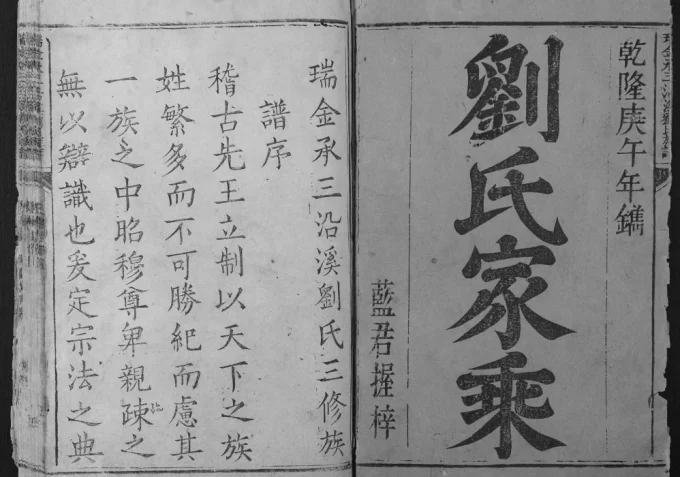 乾隆庚午年鐫
劉氏家乘
藍君握梓
瑞金承三沿溪劉氏三修族
譜序
稽古先王立制以天下之族
姓繁多而不可勝紀而慮其
一族之中昭穆尊卑親疎之
無以辯識也爰定宗法之典